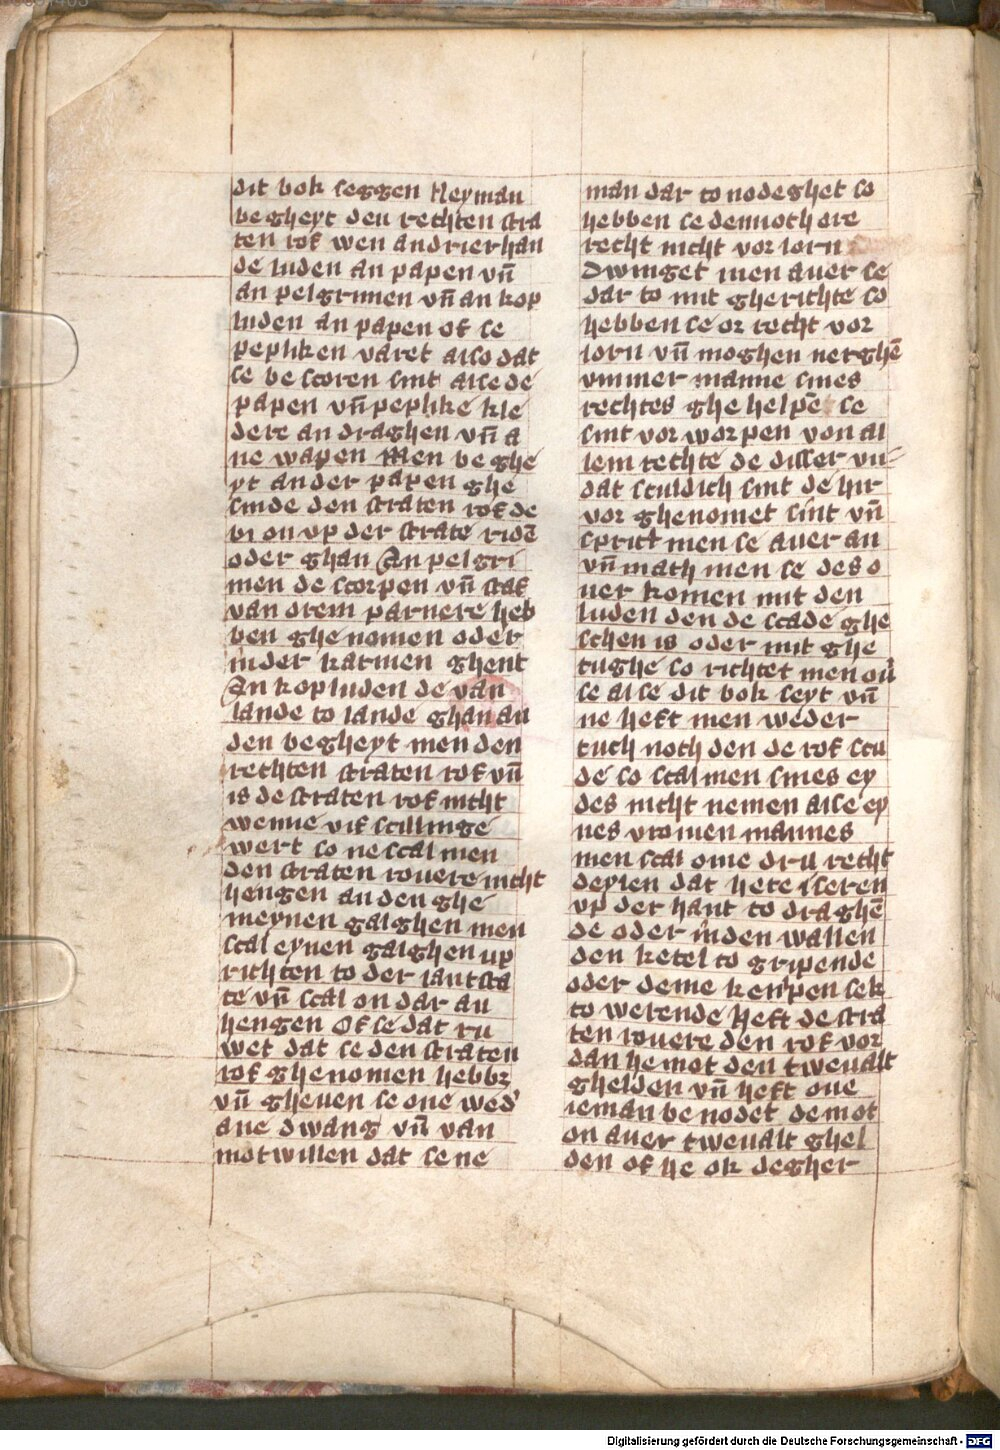 dit bok seggen Neyman
begheyt den rechten stra
ten rof wen an drier han
de luden an papen vn̄
an pelgrimen vn̄ an kop
luden an papen of se
pepliken varet also dat
se be scoren sint alse de
papen vn̄ peplike kle
dere an draghen vn̄ a
ne wapen Men be ghe
yt an der papen ghe
sinde den straten rof de
bi on vp der strate ridē
oder ghan An pelgri
men de scorpen vn̄ staf
van orem parnere heb
ben ghe nomen oder
in der karinen ghent
An kopluden de van
lande to lande ghan an
den begheyt men den
rechten straten rof vn̄
is de straten rof nicht
wenne vif scillinge
wert so ne scal men
den straten rouere nicht
hengen an den ghe
meynen galghen men
scal eynen galghen up
richten to der lantstra
te vn̄ scal on dar an
hengen Of se dat ru
wet dat se den straten
rof ghe nomen hebbz
vn̄ gheuen se one wed'
ane dwang vn̄ van
motwillen dat se ne
man dar to nodeghet so
hebben se dennoch ore
recht nicht vor lorn
Dwinget men auer se
dar to mit gherichte so
hebben se or recht vor
lorn vn̄ moghen nerghē
vmmer manne sines
rechtes ghe helpē se
sint vor worpen von al
lem rechte de disser un
dat sculdich sint de hir
vor ghenomet sint vn̄
spricht men se auer an
vn̄ mach men se des o
uer komen mit den
luden den de scade ghe
schen is oder mit ghe
tughe so richtet men ou'
se alse dit bok seyt vn̄
ne heft men weder
tuch noch den de rof scu
de so scal men sines ey
des nicht nemen alse ey
nes vromen mannes
men scal ome dru recht
deylen dat hete iseren
vp der hant to draghē
de oder in den wallen
den ketel to gripende
oder deme kenpen sek
to werende Heft de stra
ten rouere den rof vor
dan he mot den tweualt
ghelden vn̄ heft one
ieman be nodet de mot
on auer tweualt ghel
den of he ok degher